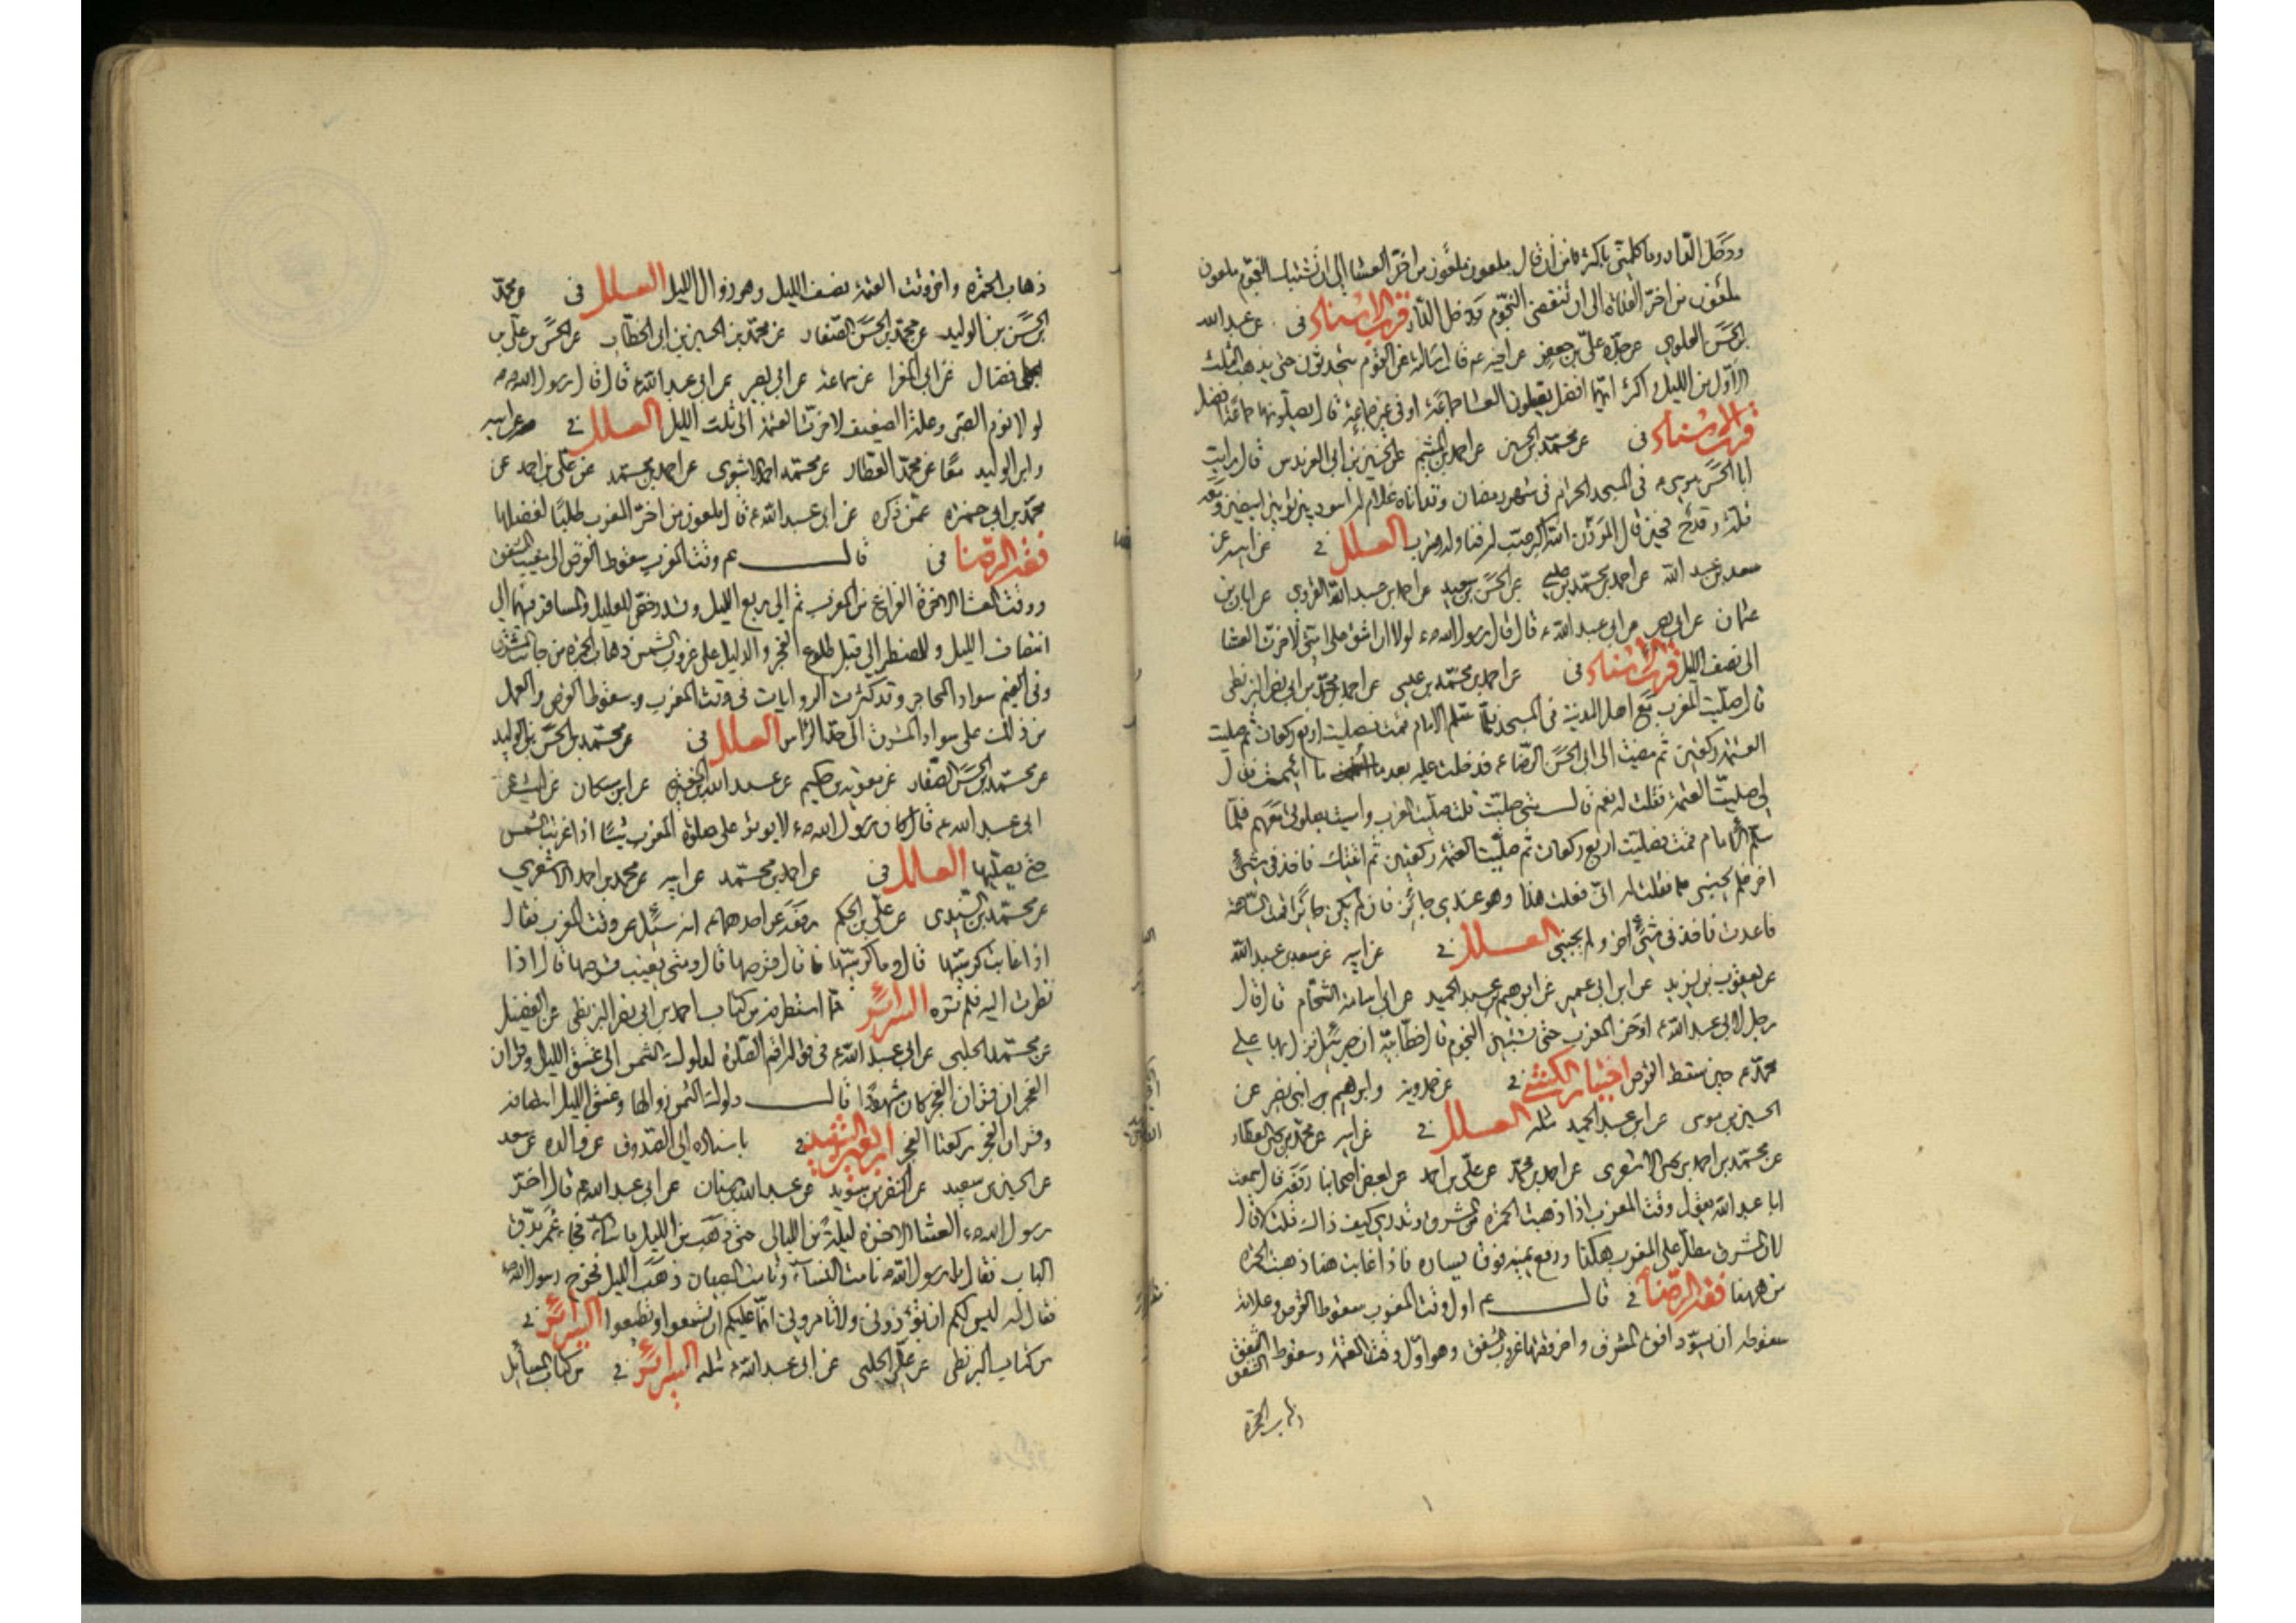 ودخل الدار وما كلمني بأكثر من أن قال ملعون ملعون من اخّر العشا الى ان تشتبك النجوم ملعون
ملعون من اخّر الغداة الى ان تنقضي النجوم ودخل الدار قرب الاسناد فى عن عبد الله
بن الحسن العلوي عن جدّه علي بن جعفر عن اخيه ع قال سالته عن القوم يتحدثون حتى يذهب الثلث
الاوّل من الليل او اكثر ايّهما افضل يصلون العشا جماعة او فى غير جماعة قال يصلّونها جماعة افضل
قرب الاسناد فى عن محمّد بن الحسين عن احمد بن الميثم عن الحسين بن ابى العرندس قال رايت
ابا الحسن موسى ع فى المسجد الحرام فى شهر رمضان وقد اتاه غلام له اسود بين ثوبين ابيضين ومعه
قلّة وقدح فحين قال المؤذن الله اكبر صبّ له فناوله وشرب العلل فى عن ابيه عن
سعد بن عبد الله عن احمد بن محمّد بن عيسى عن الحسن بن سعيد عن احمد بن عبد الله القروي عن ابان بن
عثمان عن ابى بصير عن ابى عبد الله ع قال قال رسول الله ص لولا ان اشق على امتى لاخرت العشا
الى نصف الليل قرب الاسناد فى عن احمد بن محمّد بن عيسى عن احمد بن محمّد بن ابى نصر البزنطى
قال صلّيت المغرب مع اهل المدينة فى المسجد فلمّا سلّم الامام قمت فصليت اربع ركعات ثم صليت
العتمة ركعتين ثم مضيت الى ابى الحسن الرضا ع فدخلت عليه بعد ما اعتمت فقال
لى صليت العتمة فقلت له نعم قال متى صليت قلت صليت المغرب معهم فلمّا
سلّم الامام قمت فصليت اربع ركعات ثم صلّيت العتمة ركعتين ثم اتيتك فاخذ فى شئ
اخر فلم يجبنى فقلت له انّى فعلت هذا وهو عندي جائز فان لم يكن جائزا قمت الساعة
فاعدت فاخذ فى شئ اخر ولم يجبنى العلل فى عن ابيه عن سعد بن عبد الله
عن يعقوب بن يزيد عن ابن ابى عمير عن ابرهيم بن عبد الحميد عن ابى اسامة الشحّام قال قال
رجل لابى عبد الله ع اؤخر المغرب حتى تستبين النجوم قال خطّابيّة ان جبرئيل نزل بها على
محمّد ص حين سقط القرص اختيار الكشى فى عن حمدويه وابرهيم بن نصير عن
الحسين بن موسى عن ابن عبد الحميد مثله العلل فى عن ابيه عن محمّد بن يحيى العطار
عن محمّد بن احمد بن يحيى الاشعرى عن احمد بن محمّد عن علي بن احمد عن بعض اصحابنا رفعه قال سمعت
ابا عبد الله يقول وقت المغرب اذا ذهبت الحمرة من المشرق وتدرى كيف ذاك قلت لا قال
لان المشرق مطلّ على المغرب هكذا ورفع يمينه فوق يساره فاذا غابت هنا ذهبت الحمرة
من ههنا فقه الرضا فى قال ع اول وقت المغرب سقوط القرص وعلامة
سقوطه ان يسوّد افق المشرق واخر وقتها غروب الشفق وهو اوّل وقت العتمة وسقوط الشفق
الشفق
ذهاب الحمرة
ذهاب الحمرة واخر وقت العتمة نصف الليل وهو زوال الليل العلل فى عن محمّد
بن الحسن بن الوليد عن محمّد بن الحسن الصفار عن محمّد بن الحسين بن ابى الخطاب عن الحسن بن على بن
فضال عن ابى المغرا عن سماعة عن ابى بصير عن ابى عبد الله ع قال قال رسول الله ص
لولا نوم الصبى وعلة الضعيف لاخرت العتمة الى ثلث الليل العلل فى عن ابيه
وابن الوليد معًا عن محمّد العطار عن محمّد بن احمد الاشعرى عن احمد بن محمّد عن على بن احمد عن
محمّد بن ابى حمزه عمّن ذكره عن ابى عبد الله ع قال ملعون من اخّر المغرب طلبًا لفضلها
فقه الرضا فى قال ع وقت المغرب سقوط القرص الى مغيب الشفق
ووقت العشا الاخرة الفراغ من المغرب ثم الى ربع الليل وقد رخص للعليل والمسافر فيهما الى
انتصاف الليل وللمضطر الى قبل طلوع الفجر والدليل على غروب الشمس ذهاب الحمرة من جانب المشرق
وفى الغيم سواد المحاجر وقد كثرت الروايات فى وقت المغرب وسقوط القرص والعمل
من ذلك على سواد المشرق الى حدّ الراس العلل فى عن محمّد بن الحسن بن الوليد
عن محمّد بن الحسن الصفار عن معوية بن حكيم عن عبد الله بن المغيرة عن ابن مسكان عن ليث عن
ابى عبد الله ع قال كان رسول الله ص لا يوثر على صلوة المغرب شيئًا اذا غربت الشمس
حتى يصليها العلل فى عن احمد بن محمّد عن ابيه عن محمد بن احمد الاشعري
عن محمّد بن السندى عن علي بن الحكم رفعه عن احدهما ع انه سئل عن وقت المغرب فقال
اذا غاب كرسيّها قال وما كرسيّها قال قرصها قال ومتى يغيب قرصها قال اذا
نظرت اليه فلم تره السرائر مما استطرفه من كتاب احمد بن ابى نصر البزنطى عن المفضل
عن محمّد الحلبى عن ابى عبد الله ع فى قوله اقم الصلوة لدلوك الشمس الى غسق الليل وقران
الفجر ان قران الفجر كان مشهودًا قال دلوك الشمس زوالها وغسق الليل انتصافه
وقران الفجر ركعتا الفجر فى باسناده الى الصدوق عن والده عن سعد
عن الحسين بن سعيد عن النضر بن سويد عن عبد الله بن سنان عن ابى عبد الله ع قال اخّر
رسول الله ص العشا الاخرة ليلة من الليالى حتى ذهب من الليل ما شاء الله فجاء عمر يدقّ
الباب فقال يا رسول الله نامت النساء ونامت الصبيان ذهب الليل فخرج رسول الله ص
فقال له ليس لكم ان تؤذونى ولا تامرونى انّما عليكم ان تسمعوا وتطيعوا السرائر فى
من كتاب البزنطى عن على الحلبى عن ابى عبد الله ع مثله السرائر فى من كتاب المسائل